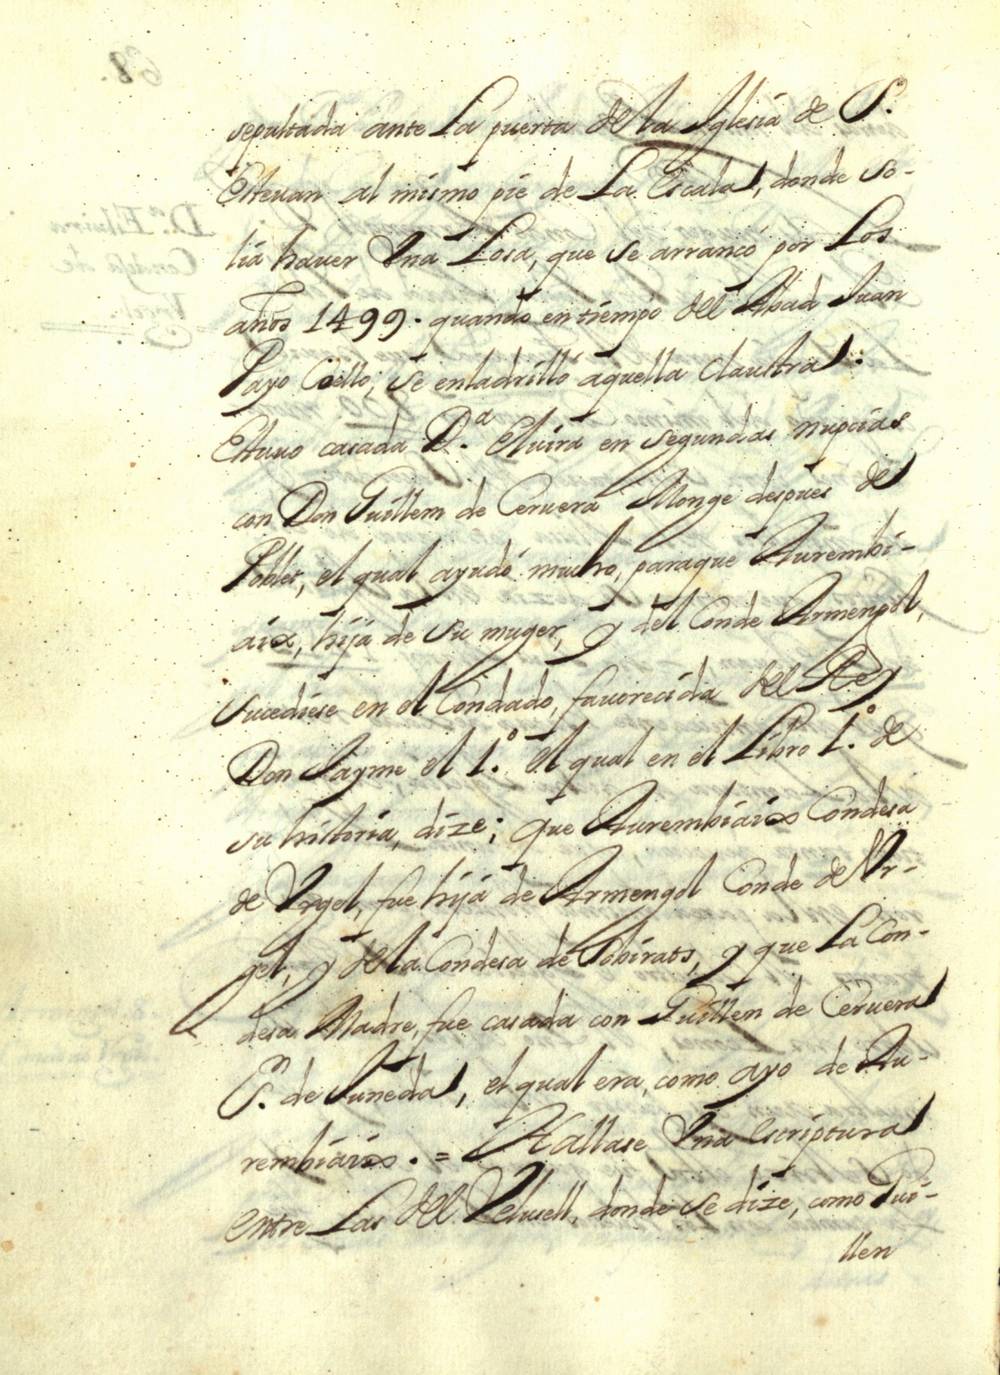 sepultada ante La puerta de la Iglesia de S.
Estevan al mismo pie de La Escala, donde so-
lia haver Una Losa, que se arrancó por Los
años 1499. quando en tiempo del Abad Juan
Payo Coello, se enladrilló aquella claustra.
Estuvo casada D.ª Elvira en segundas nupcias
con Don Guillem de Cervera Monge despues de
Poblet, el qual ayudó mucho, paraque Aurembi-
aix, hija de su muger, y del Conde Armengol,
sucediese en el Condado, favorecida del Rey
Don Jayme el 1.º el qual en el Libro 1.º de
su historia, dize; que Aurembiaix Condesa
de Vrgel, fue hija de Armengol Conde de Vr-
gel, y de la Condesa de Sobirats, y que La Con-
desa Madre, fue casada con Guillem de Cervera
S.ⁿ de Juneda, el qual era, como ayo de Au-
rembiaix. = Hallase Una escriptura
entre Las del, donde se dize, como Gui-
llen